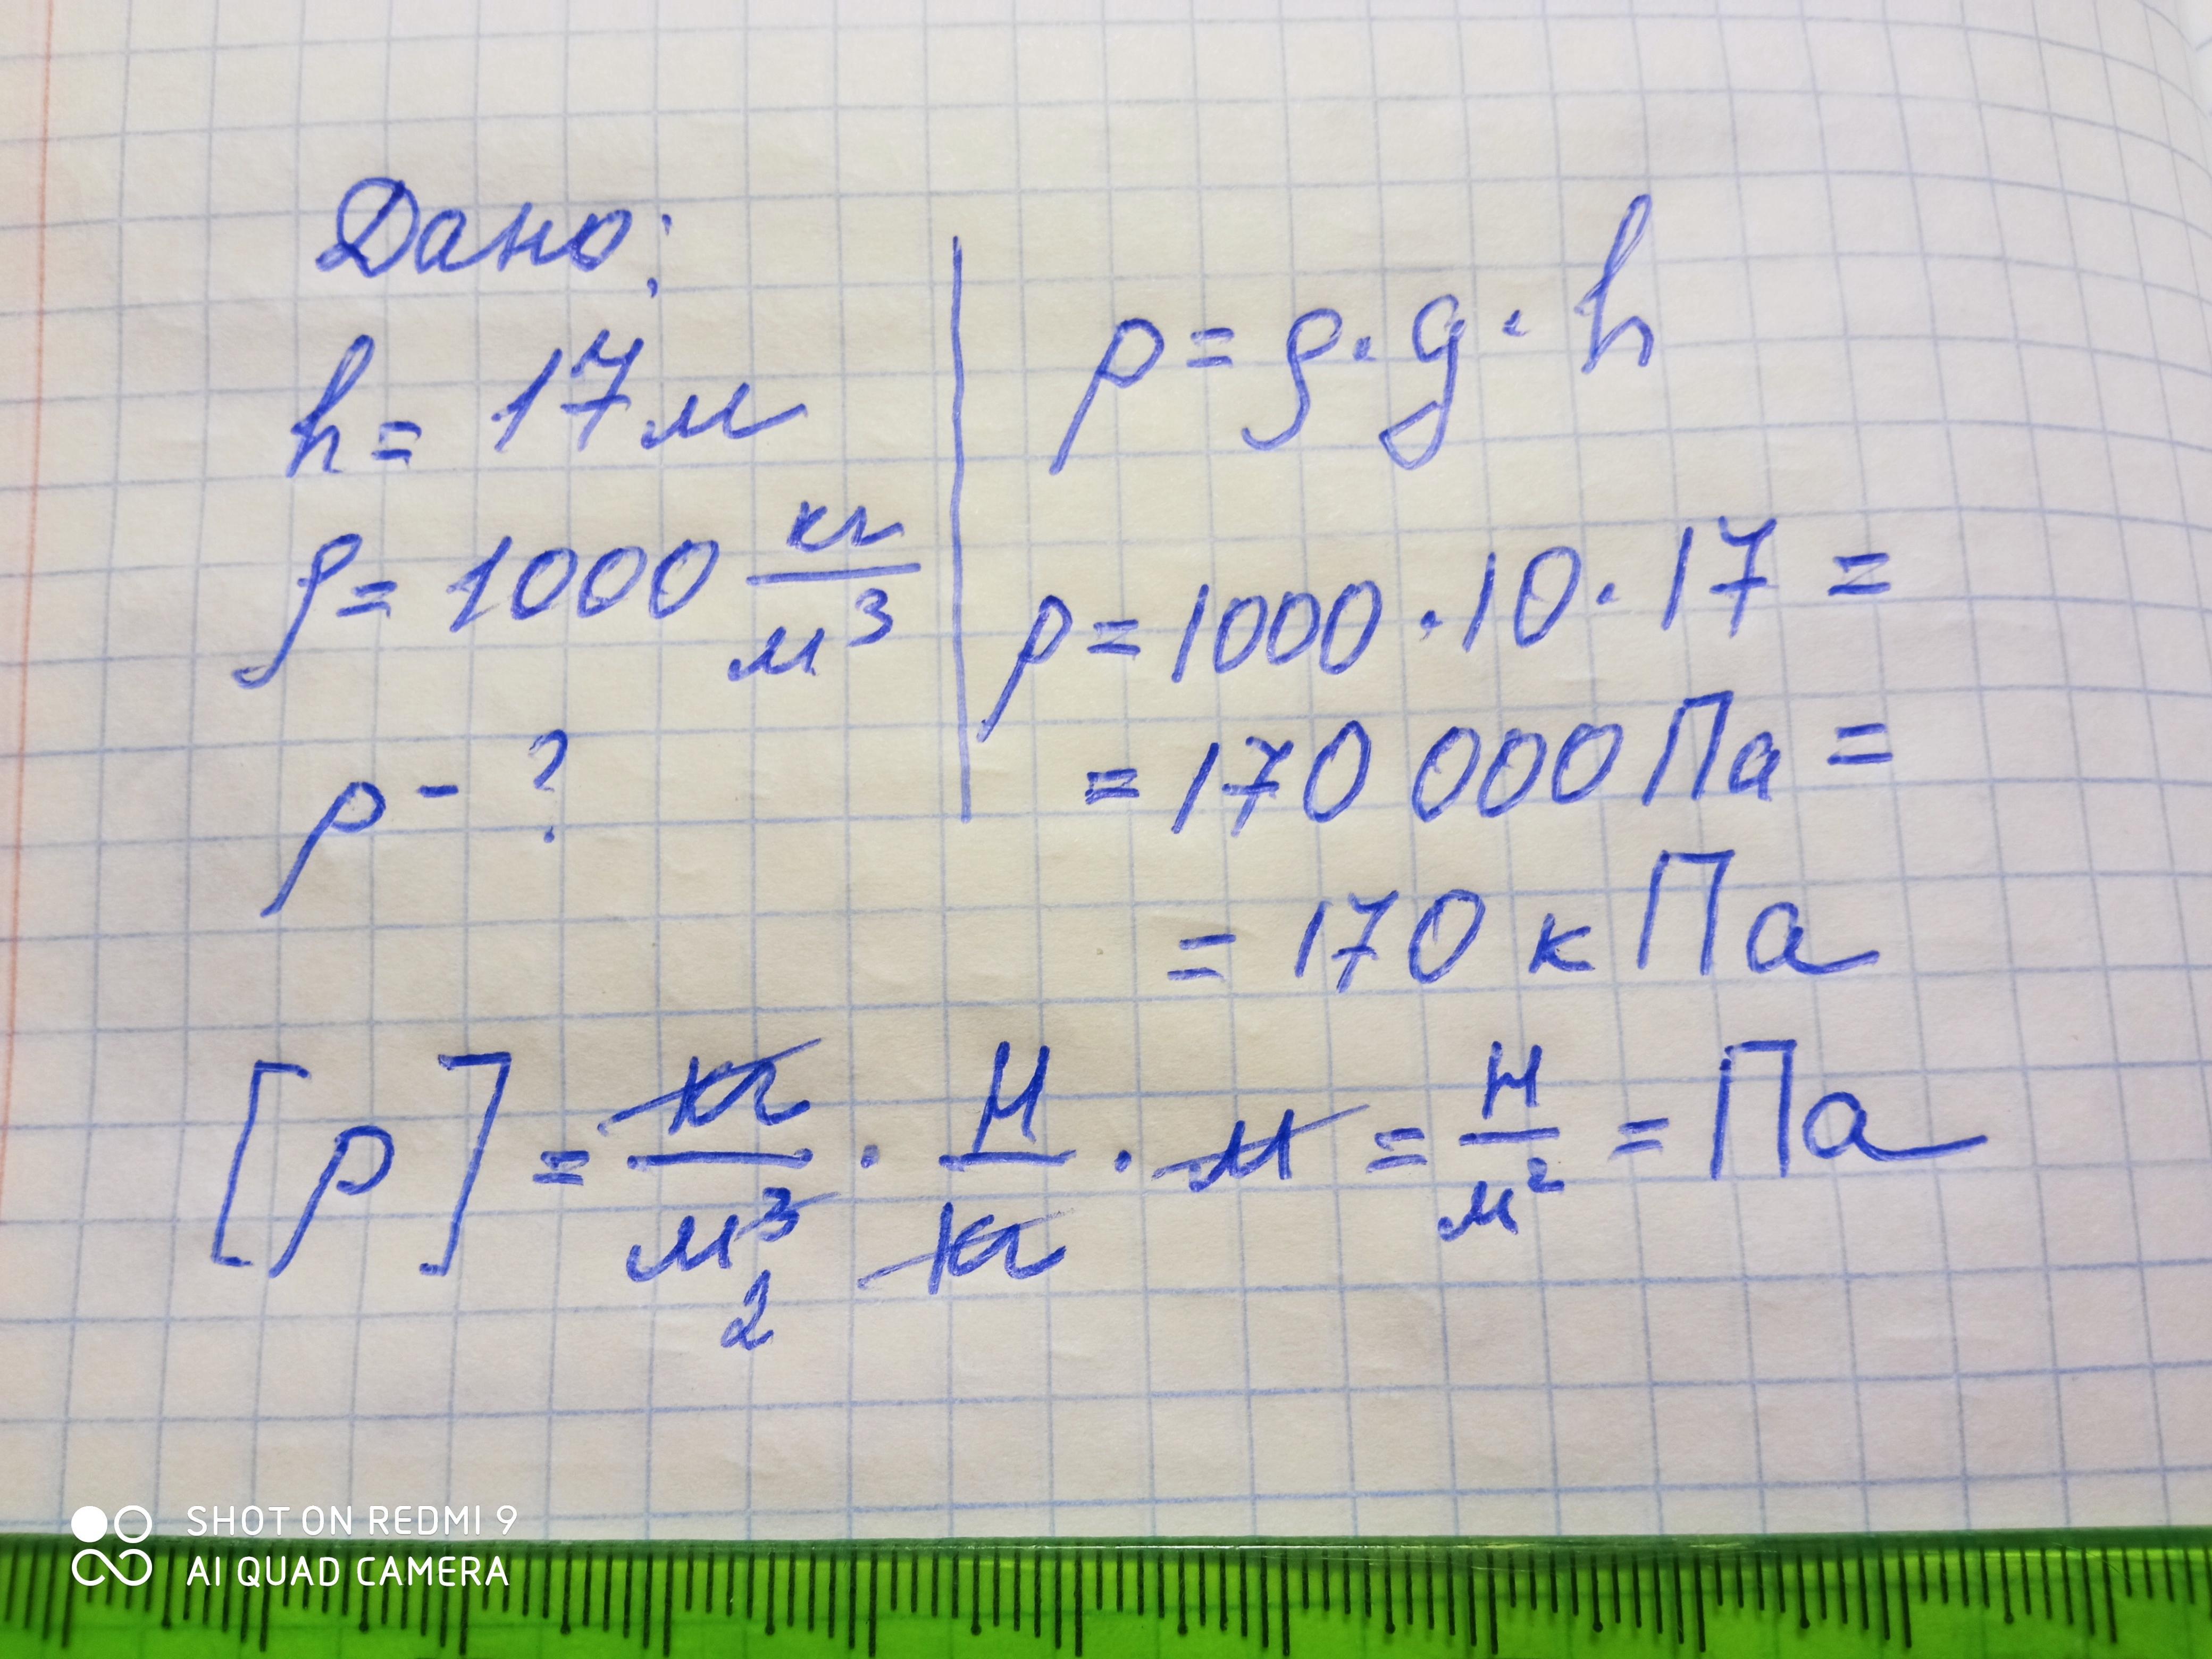 Дано:
h = 17 м
ρ = 1000 кг/м³
p - ?
p = ρ · g · h
p = 1000 · 10 · 17 =
= 170 000 Па =
= 170 кПа
[p] = кг/м³ 2 · Н/кг · м = Н/м² = Па
SHOT ON REDMI 9
AI QUAD CAMERA